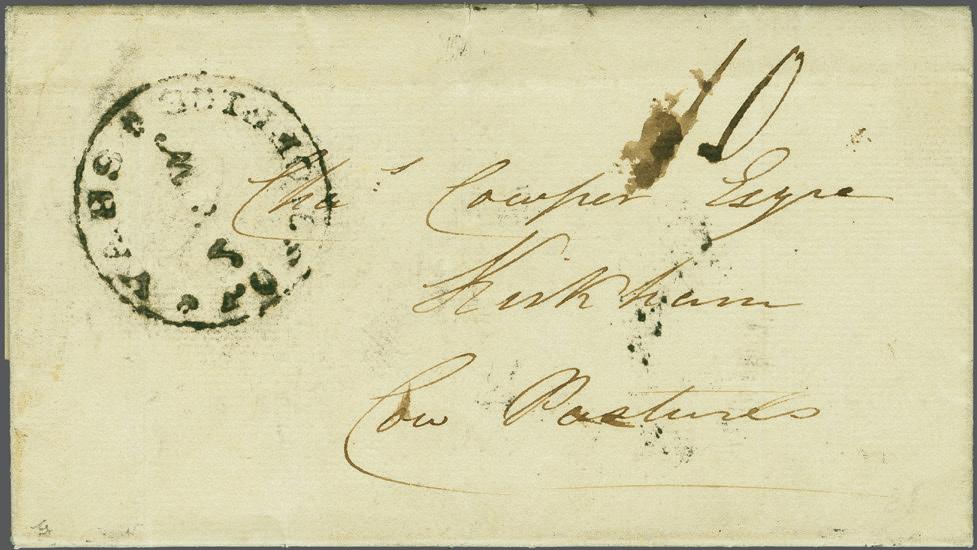 10
Cha^s Cowper Esqre
Kirkham
Cow Pastures